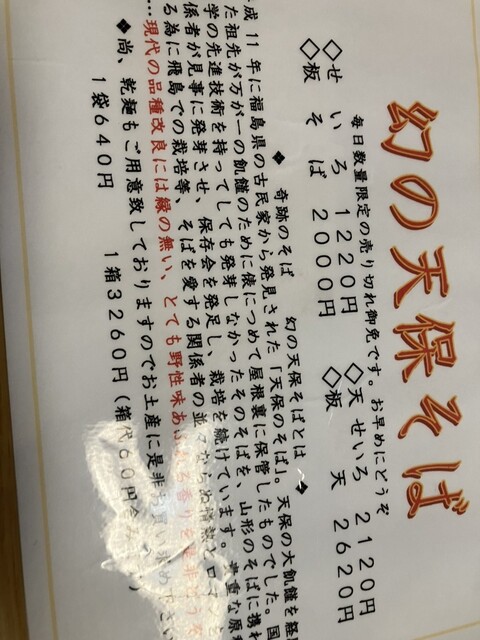 幻の天保そば
毎日数量限定の売り切れ御免です。お早めにどうぞ
◇せいろ 1220円 ◇天せいろ 2120円
◇板そば 2000円 ◇板天 2620円
◆ 奇跡のそば 幻の天保そばとは ◆
成11年に福島県の古民家から発見された「天保のそば」。天保の大飢饉を経
た祖先が万が一の飢饉のために俵につめて屋根裏に保管したものでした。国
学の先進技術を持ってしても発芽しなかったそのそばを、山形のそばに携わ
係者が見事に発芽させ、保存会を発足し、栽培を続けています。貴重な原種
る為に飛島での栽培等、そばを愛する関係者の並々ならぬ情熱
…現代の品種改良には縁の無い、とても野性味あ
◆尚、乾麺もご用意致しておりますのでお土産に是非お買い求め下さい
1袋640円 1箱3260円(箱代60円含